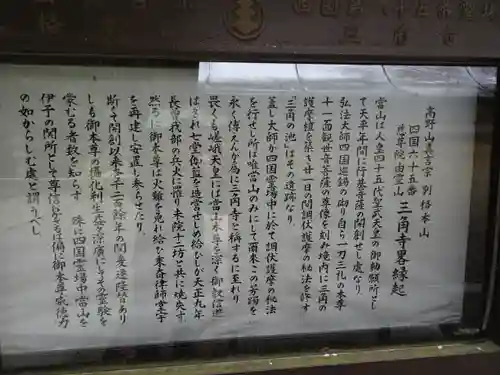 高野山真言宗 別格本山
四国六十五番
慈尊院由霊山 三角寺畧縁起
当山は人皇四十五代聖武天皇の御勅願所とし
て天平年間に行基菩薩の開創せし処なり
弘法大師四国巡錫の御り自ら一刀三礼の本尊
十一面観世音菩薩の尊像を刻み境内に三角の
護摩壇を築き廿一日の間調伏護摩の秘法を許す
三角の池」はその遺跡なり
蓋し大師が四国霊場中に於て調伏護摩の秘法
を行せし所は唯当山のみにして爾来この芳躅を
永く傳へんが為に三角寺と稱するに至れり
畏くも嵯峨天皇には当山本尊を深く御信進
はされ七堂伽藍を造営せしめ給ひしが天正九年
長曽我部の兵火に罹り末院十二坊と共に焼失す
然るに御本尊は火難を免れ給な来奇律師堂宇
を再建し安置し奉りたり。
断て開創以来千二百余年の間変遷隆替あり
しも御本尊の儀化利生益々深廣にしてその霊験を
蒙むる者数を知らず 殊に四国霊場中当山を
伊予の関所として尊信
の如からしむ處と謂うべし